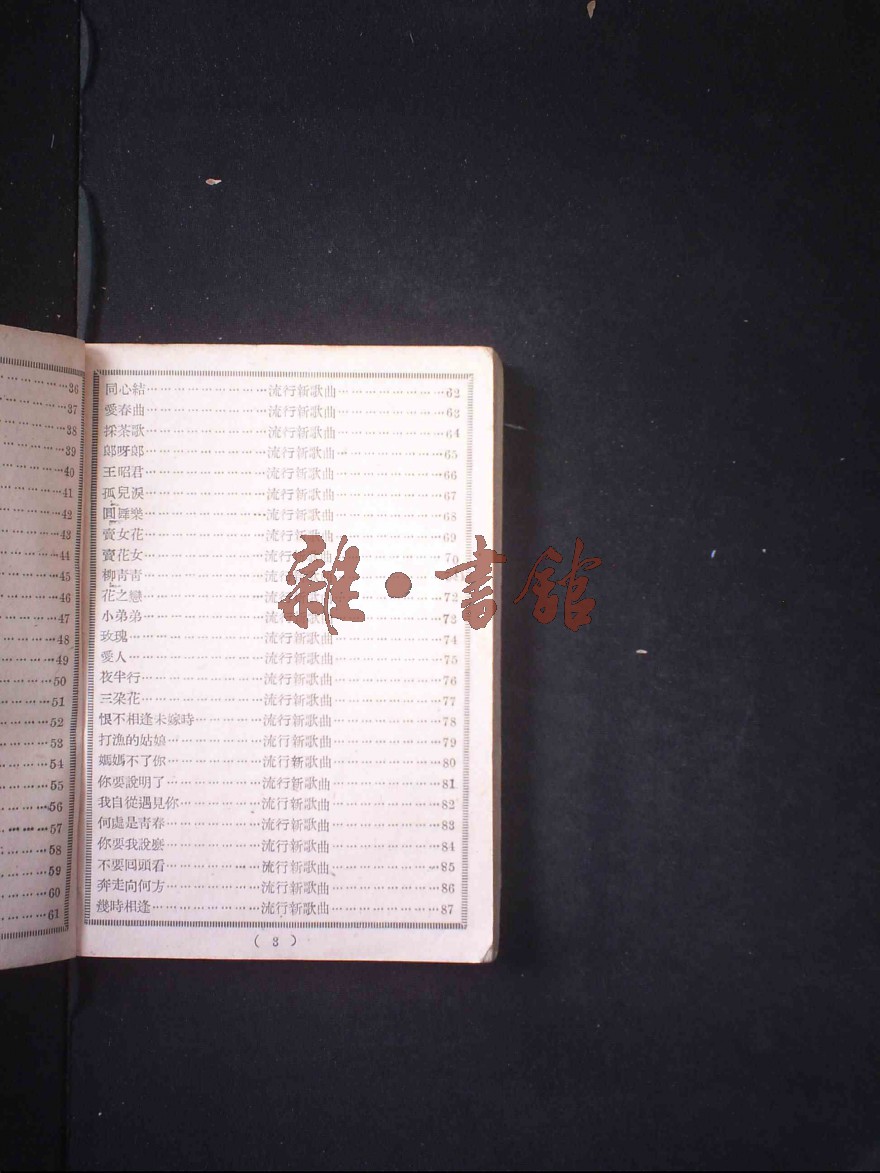 36
37
38
39
40
41
42
43
44
45
46
47
48
49
50
51
52
53
54
55
56
57
58
59
60
61
同心結⋯⋯⋯⋯⋯⋯⋯⋯流行新歌曲⋯⋯⋯⋯⋯⋯62
愛春曲⋯⋯⋯⋯⋯⋯⋯⋯流行新歌曲⋯⋯⋯⋯⋯⋯63
採茶歌⋯⋯⋯⋯⋯⋯⋯⋯流行新歌曲⋯⋯⋯⋯⋯⋯64
郞呀郞⋯⋯⋯⋯⋯⋯⋯⋯流行新歌曲⋯⋯⋯⋯⋯⋯65
王昭君⋯⋯⋯⋯⋯⋯⋯⋯流行新歌曲⋯⋯⋯⋯⋯⋯66
孤兒淚⋯⋯⋯⋯⋯⋯⋯⋯流行新歌曲⋯⋯⋯⋯⋯⋯67
圓舞樂⋯⋯⋯⋯⋯⋯⋯⋯流行新歌曲⋯⋯⋯⋯⋯⋯68
賣女花⋯⋯⋯⋯⋯⋯⋯⋯流行新歌曲⋯⋯⋯⋯⋯⋯69
賣花女⋯⋯⋯⋯⋯⋯⋯⋯流行新歌曲⋯⋯⋯⋯⋯⋯70
柳青青⋯⋯⋯⋯⋯⋯⋯⋯流行
花之戀⋯⋯⋯⋯⋯⋯⋯⋯流行⋯⋯72
小弟弟⋯⋯⋯⋯⋯⋯⋯⋯流行⋯⋯73
玫瑰⋯⋯⋯⋯⋯⋯⋯⋯⋯流行新歌曲⋯⋯⋯⋯⋯⋯74
愛人⋯⋯⋯⋯⋯⋯⋯⋯⋯流行新歌曲⋯⋯⋯⋯⋯⋯75
夜半行⋯⋯⋯⋯⋯⋯⋯⋯流行新歌曲⋯⋯⋯⋯⋯⋯76
三朶花⋯⋯⋯⋯⋯⋯⋯⋯流行新歌曲⋯⋯⋯⋯⋯⋯77
恨不相逢未嫁時⋯⋯⋯⋯流行新歌曲⋯⋯⋯⋯⋯⋯78
打漁的姑娘⋯⋯⋯⋯⋯⋯流行新歌曲⋯⋯⋯⋯⋯⋯79
媽媽不了你⋯⋯⋯⋯⋯⋯流行新歌曲⋯⋯⋯⋯⋯⋯80
你要說明了⋯⋯⋯⋯⋯⋯流行新歌曲⋯⋯⋯⋯⋯⋯81
我自從遇見你⋯⋯⋯⋯⋯流行新歌曲⋯⋯⋯⋯⋯⋯82
何處是青春⋯⋯⋯⋯⋯⋯流行新歌曲⋯⋯⋯⋯⋯⋯83
你要我說麼⋯⋯⋯⋯⋯⋯流行新歌曲⋯⋯⋯⋯⋯⋯84
不要囘頭看⋯⋯⋯⋯⋯⋯流行新歌曲⋯⋯⋯⋯⋯⋯85
奔走向何方⋯⋯⋯⋯⋯⋯流行新歌曲⋯⋯⋯⋯⋯⋯86
幾時相逢⋯⋯⋯⋯⋯⋯⋯流行新歌曲⋯⋯⋯⋯⋯⋯87
( 3 )
雜·書館